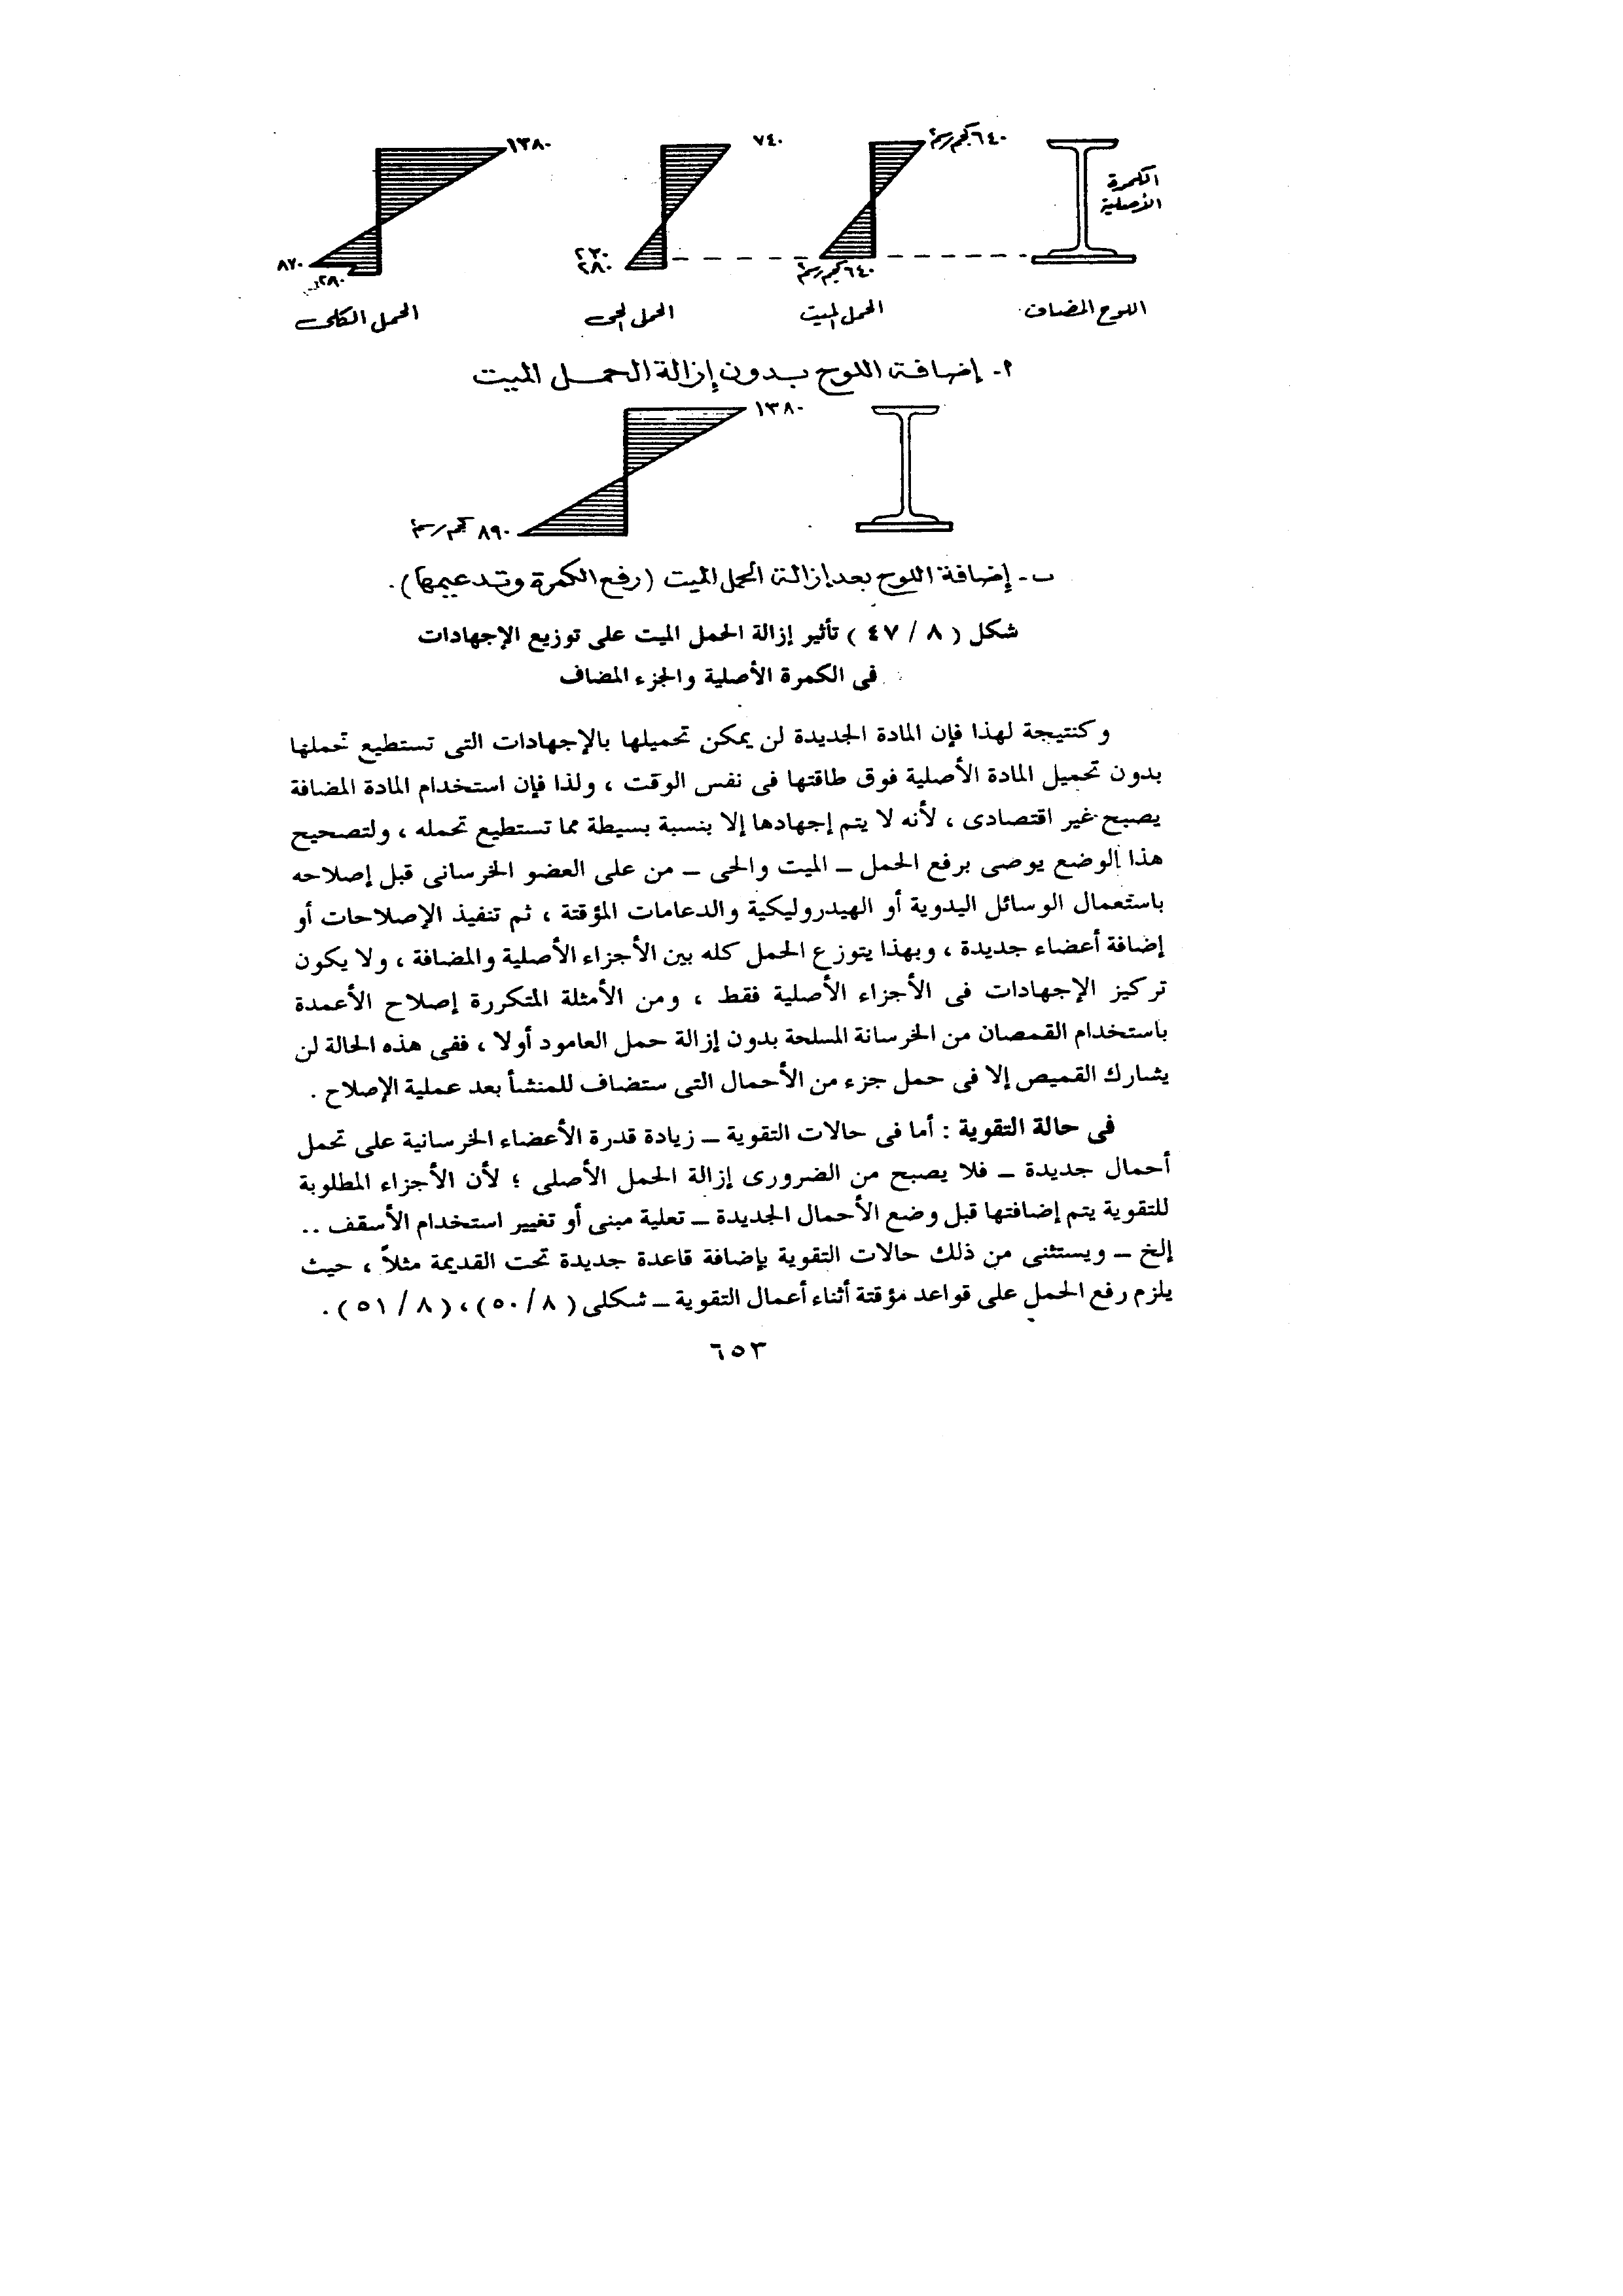 ١٣٨٠ ٧٤٠ ٦٤٠ كجم/سم٢
الكمرة
الأصلية
٨٧٠ ٢٨٠ ٢٣٠
٢٨٠ ٦٤٠ كجم/سم٢
الحمل الكلى الحمل الحى الحمل الميت اللوح المضاف
ا- إضافة اللوح بدون إزالة الحمل الميت
١٣٨٠
٨٩٠ كجم/سم٢
ب- إضافة اللوح بعد إزالة الحمل الميت (رفع الكمرة وتدعيمها).
شكل ( ٨ / ٤٧ ) تأثير إزالة الحمل الميت على توزيع الإجهادات
فى الكمرة الأصلية والجزء المضاف
وكنتيجة لهذا فإن المادة الجديدة لن يمكن تحميلها بالإجهادات التى تستطيع تحملها
بدون تحميل المادة الأصلية فوق طاقتها فى نفس الوقت ، ولذا فإن استخدام المادة المضافة
يصبح غير اقتصادى ، لأنه لا يتم إجهادها إلا بنسبة بسيطة مما تستطيع تحمله ، ولتصحيح
هذا الوضع يوصى برفع الحمل ــ الميت والحى ــ من على العضو الخرسانى قبل إصلاحه
باستعمال الوسائل اليدوية أو الهيدروليكية والدعامات المؤقتة ، ثم تنفيذ الإصلاحات أو
إضافة أعضاء جديدة ، وبهذا يتوزع الحمل كله بين الأجزاء الأصلية والمضافة ، ولا يكون
تركيز الإجهادات فى الأجزاء الأصلية فقط ، ومن الأمثلة المتكررة إصلاح الأعمدة
باستخدام القمصان من الخرسانة المسلحة بدون إزالة حمل العامود أولا ، ففى هذه الحالة لن
يشارك القميص إلا فى حمل جزء من الأحمال التى ستضاف للمنشأ بعد عملية الإصلاح .
فى حالة التقوية : أما فى حالات التقوية ــ زيادة قدرة الأعضاء الخرسانية على تحمل
أحمال جديدة ــ فلا يصبح من الضرورى إزالة الحمل الأصلى ؛ لأن الأجزاء المطلوبة
للتقوية يتم إضافتها قبل وضع الأحمال الجديدة ــ تعلية مبنى أو تغيير استخدام الأسقف ..
إلخ ــ ويستثنى من ذلك حالات التقوية بإضافة قاعدة جديدة تحت القديمة مثلاً ، حيث
يلزم رفع الحمل على قواعد مؤقتة أثناء أعمال التقوية ــ شكلى ( ٨ / ٥٠ ) ، ( ٨ / ٥١ ) .
٦٥٣